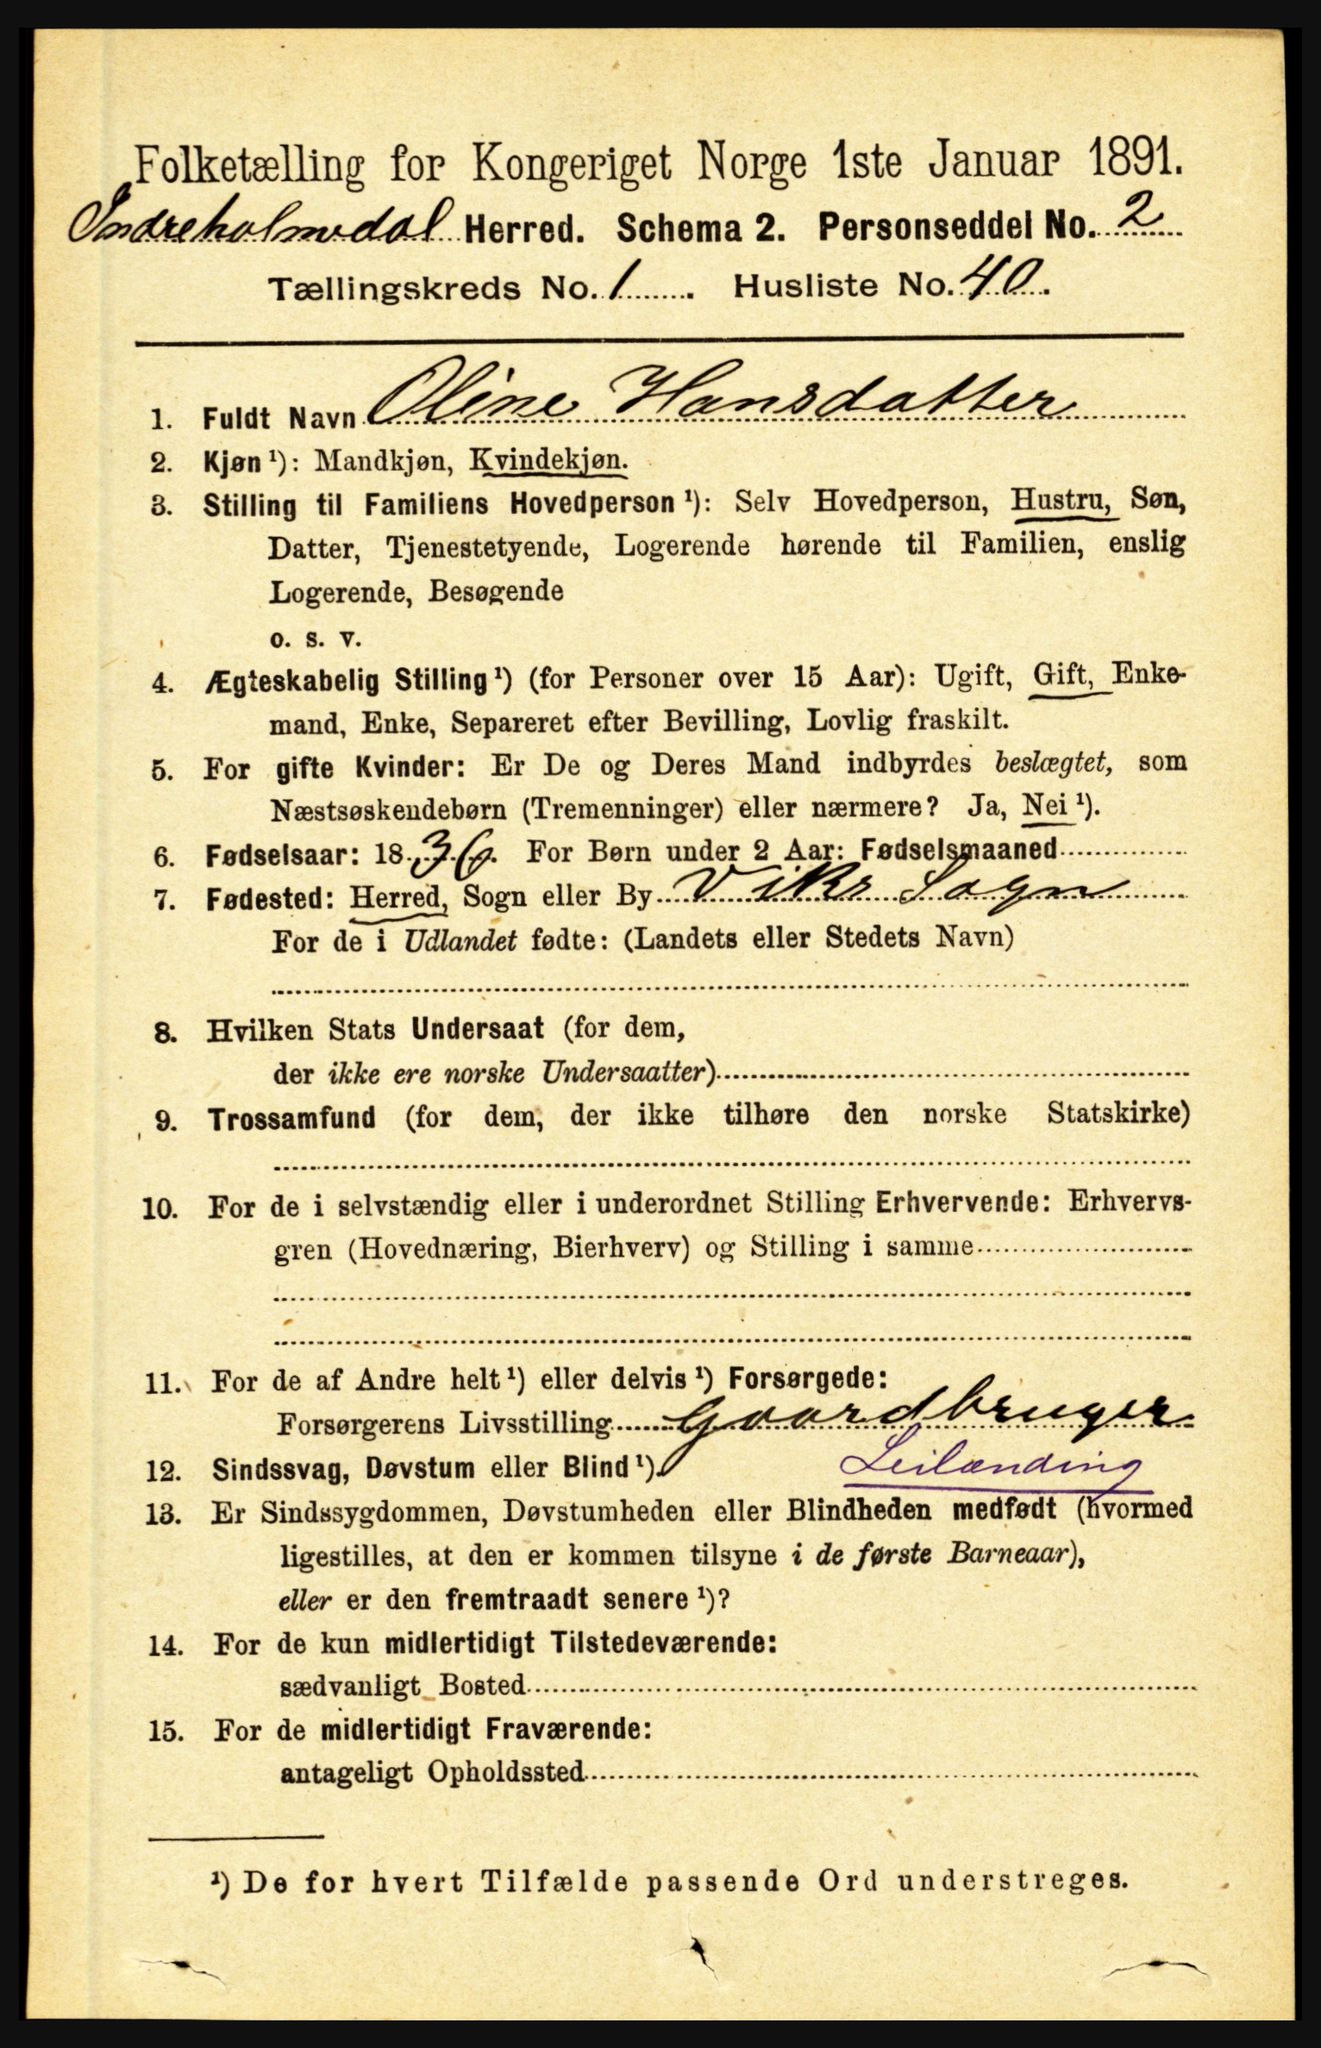 Folketælling for Kongeriget Norge 1ste Januar 1891.
Indreholmedal Herred. Schema 2. Personseddel No. 2
Tællingskreds No. 1. Husliste No. 40.
1. Fuldt Navn Oline Hansdatter
2. Kjøn ¹): Mandkjøn, Kvindekjøn.
3. Stilling til Familiens Hovedperson ¹): Selv Hovedperson, Hustru, Søn,
Datter, Tjenestetyende, Logerende hørende til Familien, enslig
Logerende, Besøgende
o. s. v.
4. Ægteskabelig Stilling ¹) (for Personer over 15 Aar): Ugift, Gift, Enke-
mand, Enke, Separeret efter Bevilling, Lovlig fraskilt.
5. For gifte Kvinder: Er De og Deres Mand indbyrdes beslægtet, som
Næstsøskendebørn (Tremenninger) eller nærmere? Ja, Nei ¹).
6. Fødselsaar: 1836. For Børn under 2 Aar: Fødselsmaaned
7. Fødested: Herred, Sogn eller By Viks Sogn
For de i Udlandet fødte: (Landets eller Stedets Navn)
8. Hvilken Stats Undersaat (for dem,
der ikke ere norske Undersaatter)
9. Trossamfund (for dem, der ikke tilhøre den norske Statskirke)
10. For de i selvstændig eller i underordnet Stilling Erhvervende: Erhvervs-
gren (Hovednæring, Bierhverv) og Stilling i samme
11. For de af Andre helt ¹) eller delvis ¹) Forsørgede:
Forsørgerens Livsstilling Gaardbruger
12. Sindssvag, Døvstum eller Blind ¹). Leilænding
13. Er Sindssygdommen, Døvstumheden eller Blindheden medfødt (hvormed
ligestilles, at den er kommen tilsyne i de første Barneaar),
eller er den fremtraadt senere ¹)?
14. For de kun midlertidigt Tilstedeværende:
sædvanligt Bosted
15. For de midlertidigt Fraværende:
antageligt Opholdssted
¹) De for hvert Tilfælde passende Ord understreges.